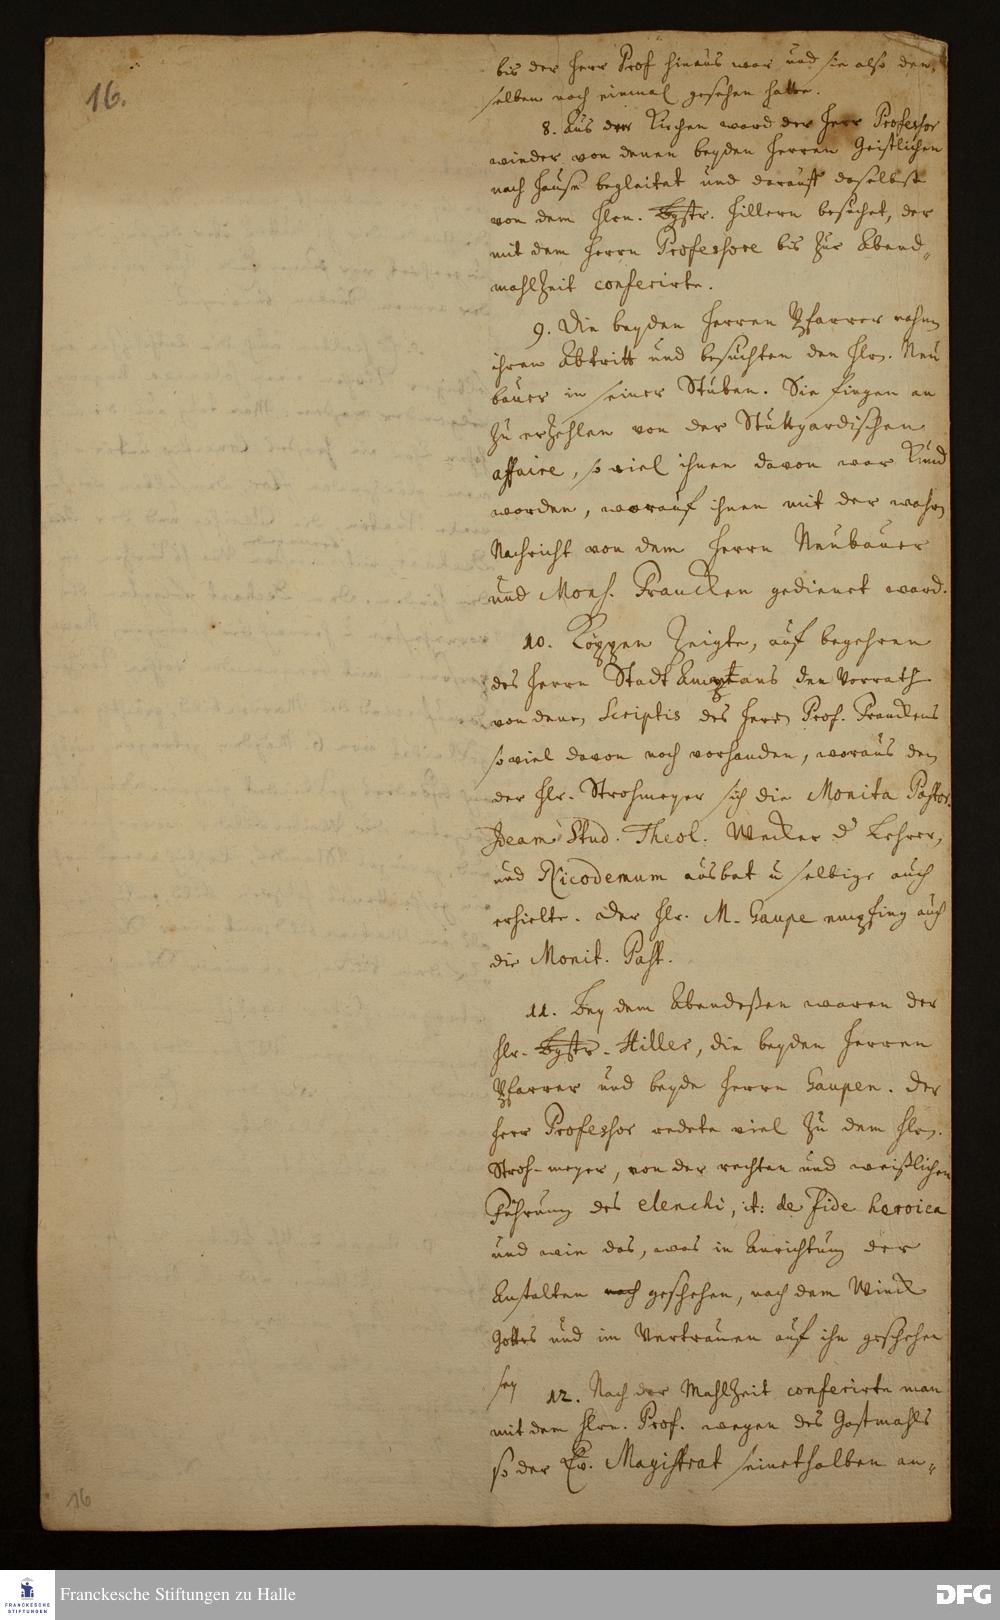 16.
bis der Herr Prof hinaus war und sie also den„
selben noch einmal gesehen hatte.
8. Aus der Kirchen ward der Herr Professor
wieder von denen beyden Herren Geistlichen
nach Hause begleitet und darauff daselbst
von dem Hrn. Hillern besuchet, der
mit dem Herrn Professore bis zur Abend„
mahlzeit conferirte.
9. Die beyden Herren Pfarrer nahm
ihren Abtritt und besuchten den Hrn. Neu
bauer in seiner Stuben. Sie fingen an
zu erzehlen von der Stuttgardischen
affaire, so viel ihnen davon war kund
worden, worauf ihnen mit der wahren
Nachricht von dem Herrn Neubauer
und Mons. Francken gedienet ward.
10. Köppen zeigte, auf begehren
des Herrn Stadt Amptans den Vorrath
von denen Scriptis des Herrn Prof. Franckens
so viel davon noch vorhanden, woraus den
der Hr. Strohmeyer sich die Monita Pastor.
Ideam Stud. Theol. Wecker d. Lehrer,
und Nicodemum ausbat u selbige auch
erhielte. Der Hr. M. Gaupe empfing auch
die Monit. Past.
11. Bey dem Abendeßen waren der
Hr. Hiller, die beyden Herren
Pfarrer und beyde Herrn Gaupen. Der
Herr Professor redete viel zu dem Hrn.
Stroh-meyer, von der rechten und weißlichen
Führung des elenchi, it: de fide heroica
und wie das, was in Anrichtung der
Anstalten noch geschehen, nach dem Winck
Gottes und im Vertrauen auf ihn geschehen
sey
12. Nach der Mahlzeit conferirte man
mit dem Hrn. Prof. wegen des Gastmahls
so der Ev. Magistrat seinethalben an„
16
FRANCKESCHE
STIFTUNGEN
Franckesche Stiftungen zu Halle
DFG